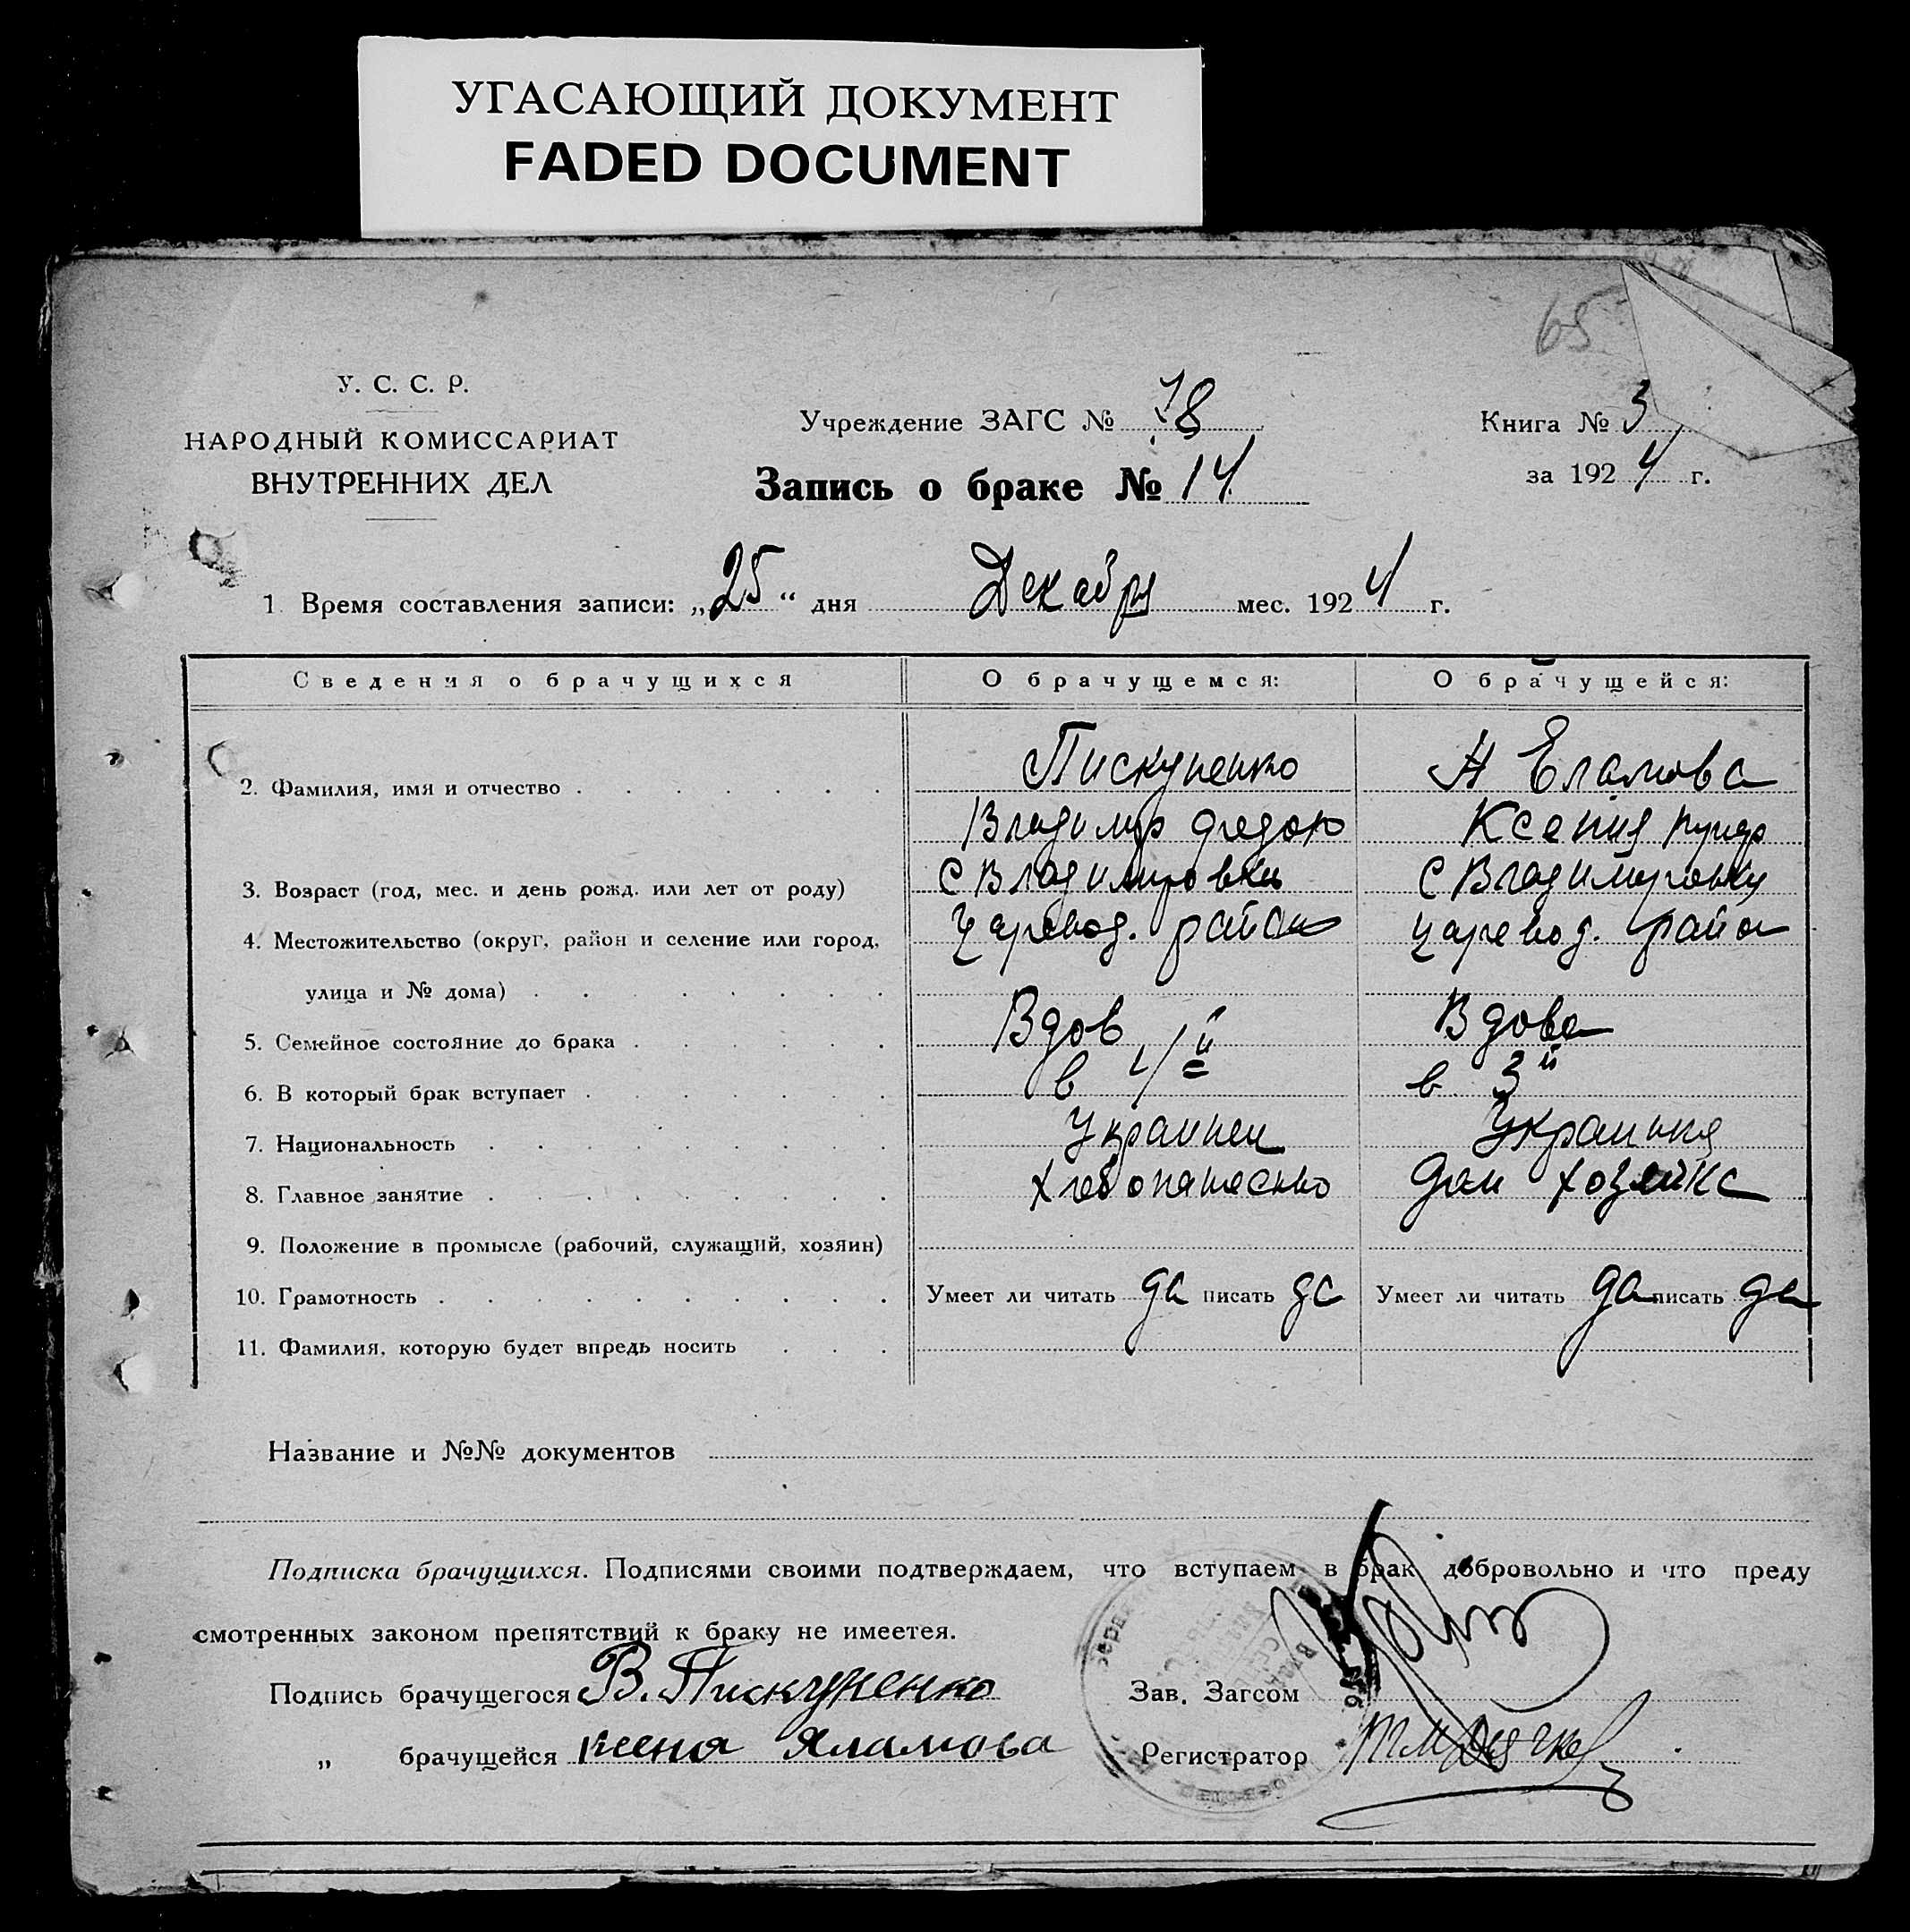 УГАСАЮЩИЙ ДОКУМЕНТ
FADED DOCUMENT
65
У. С. С. Р.
НАРОДНЫЙ КОМИССАРИАТ
ВНУТРЕННИХ ДЕЛ
Учреждение ЗАГС № 78
Запись о браке № 14
Книга № 3
за 1924 г.
1 Время составления записи: „25“ дня Декабря мес. 1924 г.
Сведения о брачущихся
О брачущемся:
О брачущейся:
2. Фамилия, имя и отчество
Пискуненко
Еламова
Владимир Федор
Ксения
3. Возраст (год, мес. и день рожд. или лет от роду)
с Владимировки
с Владимировки
4. Местожительство (округ, район и селение или город,
Царевод. район
Царевод. район
улица и № дома)
5. Семейное состояние до брака
Вдов
Вдова
6. В который брак вступает
в 4й
в 3й
7. Национальность
Украинец
Украинка
8. Главное занятие
Хлебопашество
Дом хозяйка
9. Положение в промысле (рабочий, служащий, хозяин)
10. Грамотность
Умеет ли читать да писать да
Умеет ли читать да писать да
11. Фамилия, которую будет впредь носить
Название и №№ документов
Подписка брачущихся. Подписями своими подтверждаем, что вступаем в брак добровольно и что преду
смотренных законом препятствий к браку не имеется.
Подпись брачущегося В. Пискуненко
Зав. Загсом
„ брачущейся Ксеня Яламова
Регистратор